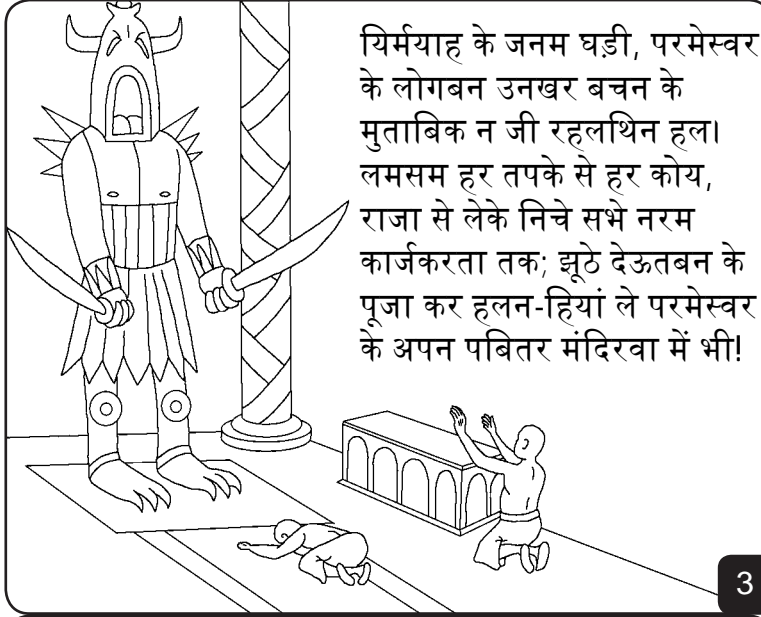 यिर्मयाह के जनम घड़ी, परमेस्वर
के लोगबन उनखर बचन के
मुताबिक न जी रहलथिन हल।
लमसम हर तपके से हर कोय,
राजा से लेके निचे सभे नरम
कार्जकरता तक; झूठे देऊतबन के
पूजा कर हलन-हियां ले परमेस्वर
के अपन पबितर मंदिरवा में भी!
3